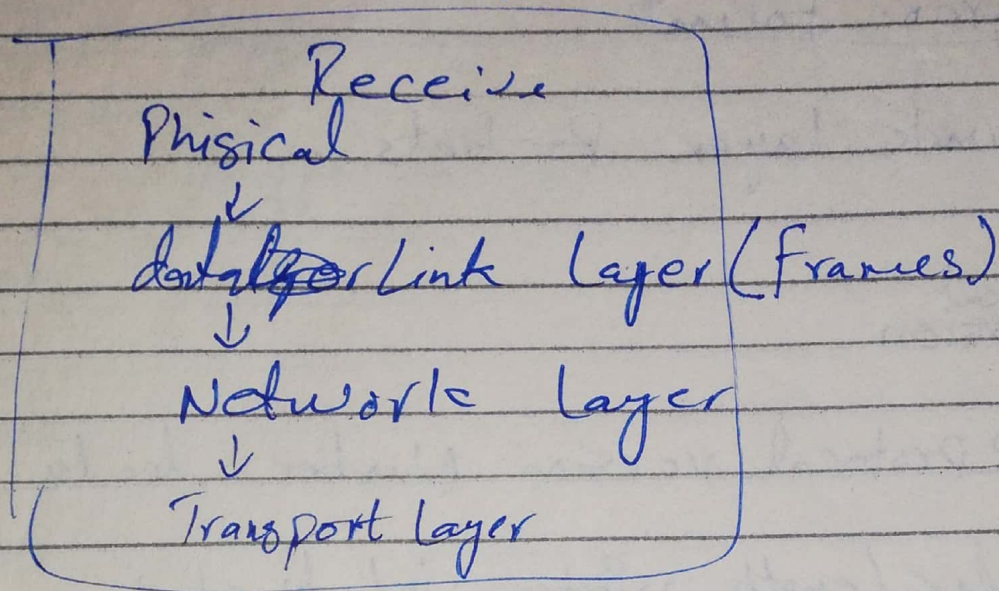 Receive
Phisical
↓
data Link Layer (frames)
↓
Network Layer
↓
Transport Layer